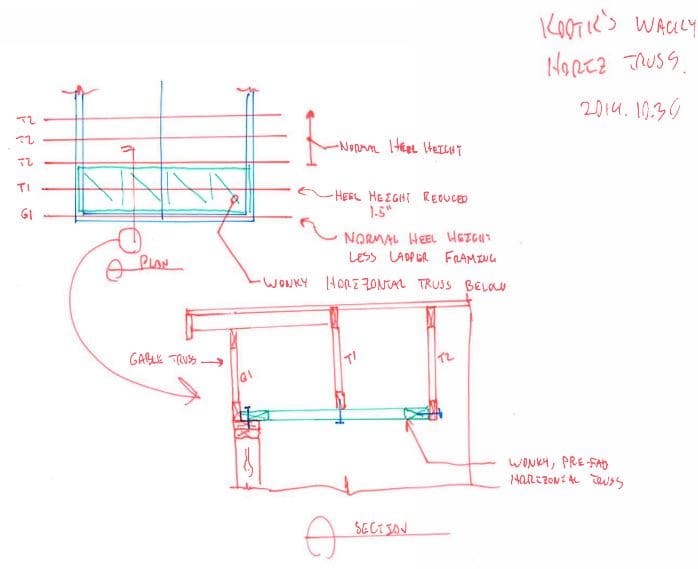 KOOTK'S WACKY
HORIZ TRUSS.
2014.10.30
T2
T2
T2
T1
G1
NORMAL HEEL HEIGHT
HEEL HEIGHT REDUCED
1.5"
NORMAL HEEL HEIGHT
LESS LADDER FRAMING
PLAN
WONKY HORIZONTAL TRUSS BELOW
GABLE TRUSS
G1
T1
T2
WONKY, PRE-FAB
HORIZONTAL TRUSS
SECTION